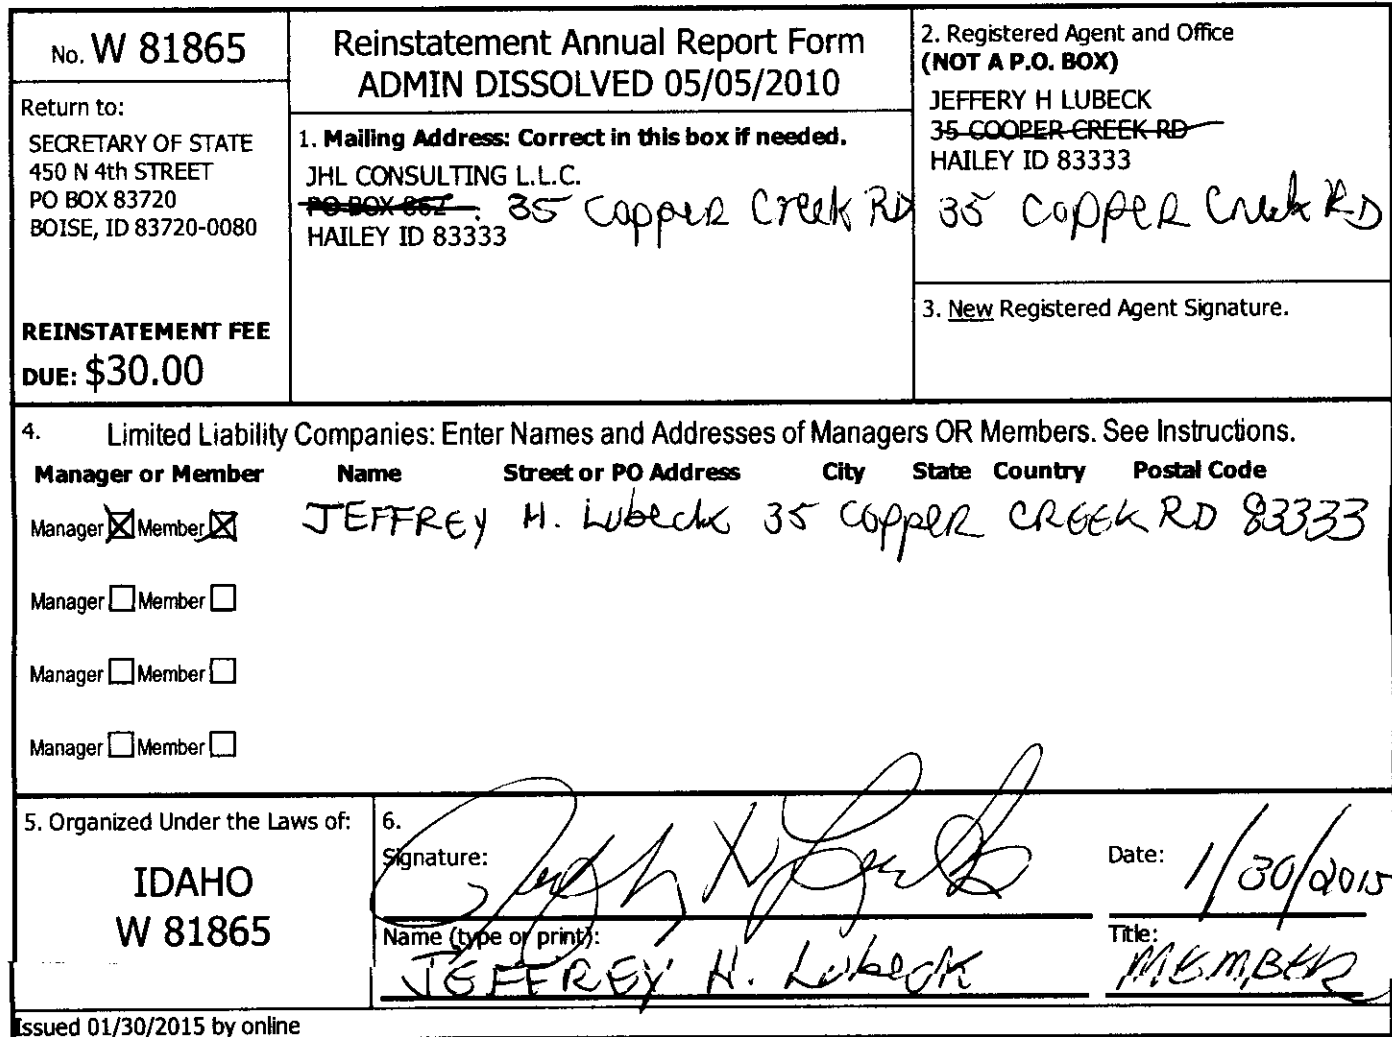 No. W 81865
Return to:
SECRETARY OF STATE
450 N 4th STREET
PO BOX 83720
BOISE, ID 83720-0080
REINSTATEMENT FEE
DUE: $30.00
Reinstatement Annual Report Form
ADMIN DISSOLVED 05/05/2010
1. Mailing Address: Correct in this box if needed.
JHL CONSULTING L.L.C.
PO BOX 35 Copper Creek RD
HAILEY ID 83333
2. Registered Agent and Office
(NOT A P.O. BOX)
JEFFERY H LUBECK
35 COOPER CREEK RD
HAILEY ID 83333
35 Copper Creek RD
3. New Registered Agent Signature.
4. Limited Liability Companies: Enter Names and Addresses of Managers OR Members. See Instructions.
Manager or Member Name Street or PO Address City State Country Postal Code
Manager Member JEFFREY H. Lubeck 35 Copper CREEK RD 83333
Manager Member
Manager Member
Manager Member
5. Organized Under the Laws of:
IDAHO
W 81865
6.
Signature:
Date: 1/30/2015
Name (type or print):
JEFFREY H. Lubeck
Title:
MEMBER
Issued 01/30/2015 by online